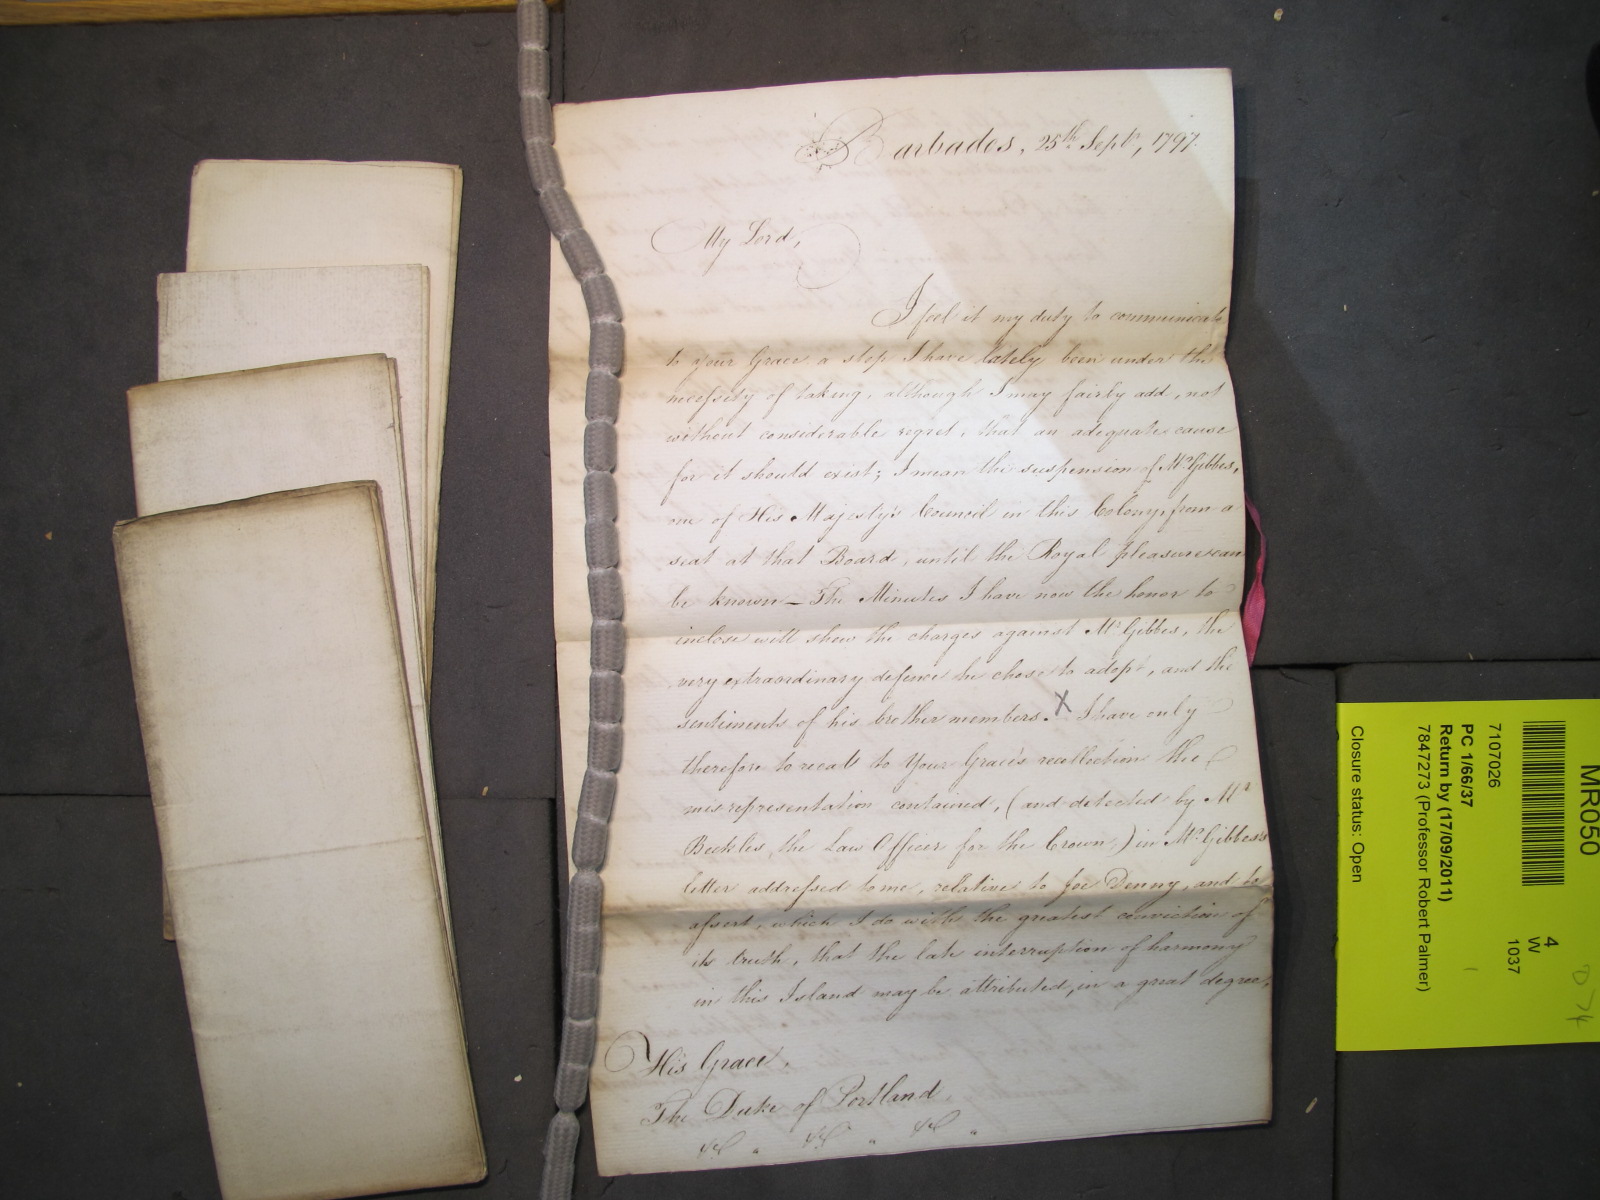 Barbados, 25th Septr, 1797.
My Lord,
I feel it my duty to communicate
to your Grace a step I have lately been under the
necessity of taking, although I may fairly add, not
without considerable regret, that an adequate cause
for it should exist; I mean the suspension of Mr. Gibbes,
one of His Majesty's Council in this Colony, from a
seat at that Board, until the Royal pleasure can
be known — The Minutes I have now the honor to
inclose will show the charges against Mr Gibbes, the
very extraordinary defence he chose to adopt, and the
sentiments of his brother members. X I have only
therefore to recall to Your Grace's recollection the
misrepresentation contained, (and detected by Mr
Beckles, the Law Officer for the Crown,) in Mr. Gibbes's
letter addressed to me, relative to Joe Denny, and to
assert, which I do with the greatest conviction of
its truth, that the late interruption of harmony
in this Island may be attributed, in a great degree,
His Grace,
The Duke of Portland
&c &c &c
MR050
7107026
PC 1/66/37
Return by (17/09/2011)
7847273 (Professor Robert Palmer)
Closure status: Open
4
W
1037